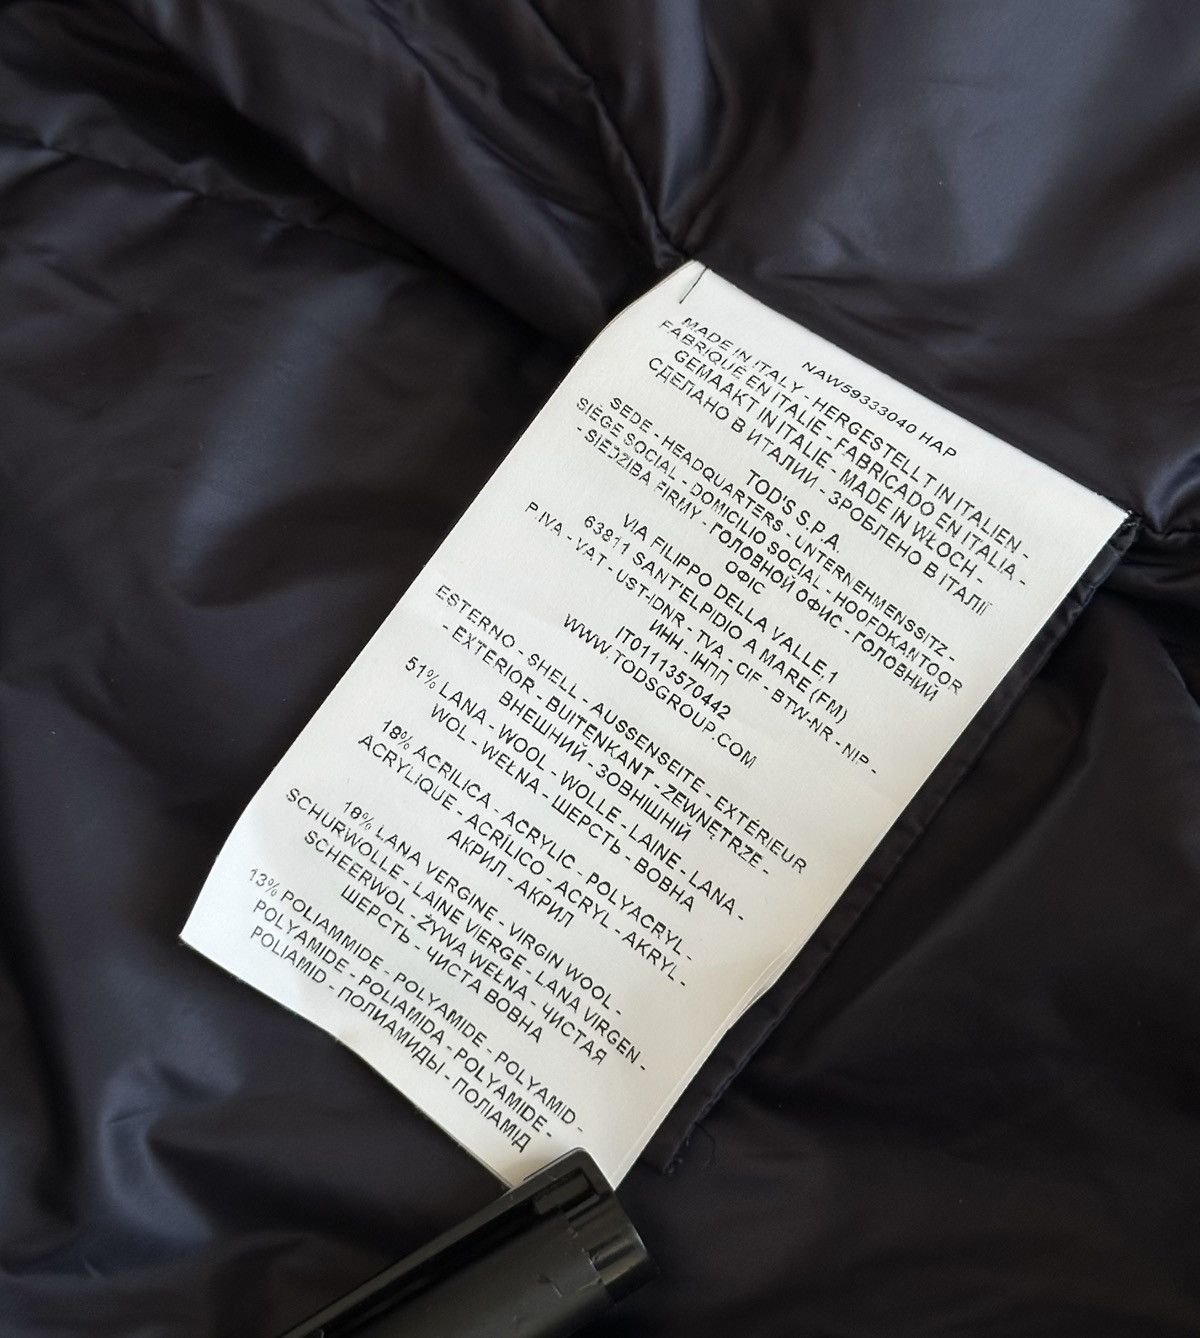 NAW59333040 HAP
MADE IN ITALY - HERGESTELLT IN ITALIEN -
FABRIQUÉ EN ITALIE - FABRICADO EN ITALIA -
GEMAAKT IN ITALIË - MADE IN WŁOCH -
СДЕЛАНО В ИТАЛИИ - ЗРОБЛЕНО В ІТАЛІЇ
TOD'S S.P.A.
SEDE - HEADQUARTERS - UNTERNEHMENSSITZ -
SIÈGE SOCIAL - DOMICILIO SOCIAL - HOOFDKANTOOR
- SIEDZIBA FIRMY - ГОЛОВНОЙ ОФИС - ГОЛОВНИЙ
ОФІС
VIA FILIPPO DELLA VALLE,1
63811 SANT'ELPIDIO A MARE (FM)
P.IVA - VAT - UST-IDNR - TVA - CIF - BTW-NR - NIP -
ИНН - ІНПП
IT01113570442
WWW.TODSGROUP.COM
ESTERNO - SHELL - AUSSENSEITE - EXTÉRIEUR
- EXTERIOR - BUITENKANT - ZEWNĘTRZE -
ВНЕШНИЙ - ЗОВНІШНІЙ
51% LANA - WOOL - WOLLE - LAINE - LANA -
WOL - WEŁNA - ШЕРСТЬ - ВОВНА
18% ACRILICA - ACRYLIC - POLYACRYL -
ACRYLIQUE - ACRÍLICO - ACRYL - AKRYL -
АКРИЛ - АКРИЛ
18% LANA VERGINE - VIRGIN WOOL -
SCHURWOLLE - LAINE VIERGE - LANA VIRGEN -
SCHEERWOL - ŻYWA WEŁNA - ЧИСТАЯ
ШЕРСТЬ - ЧИСТА ВОВНА
13% POLIAMMIDE - POLYAMIDE - POLYAMID -
POLYAMIDE - POLIAMIDA - POLYAMIDE -
POLIAMID - ПОЛИАМИДЫ - ПОЛІАМІД